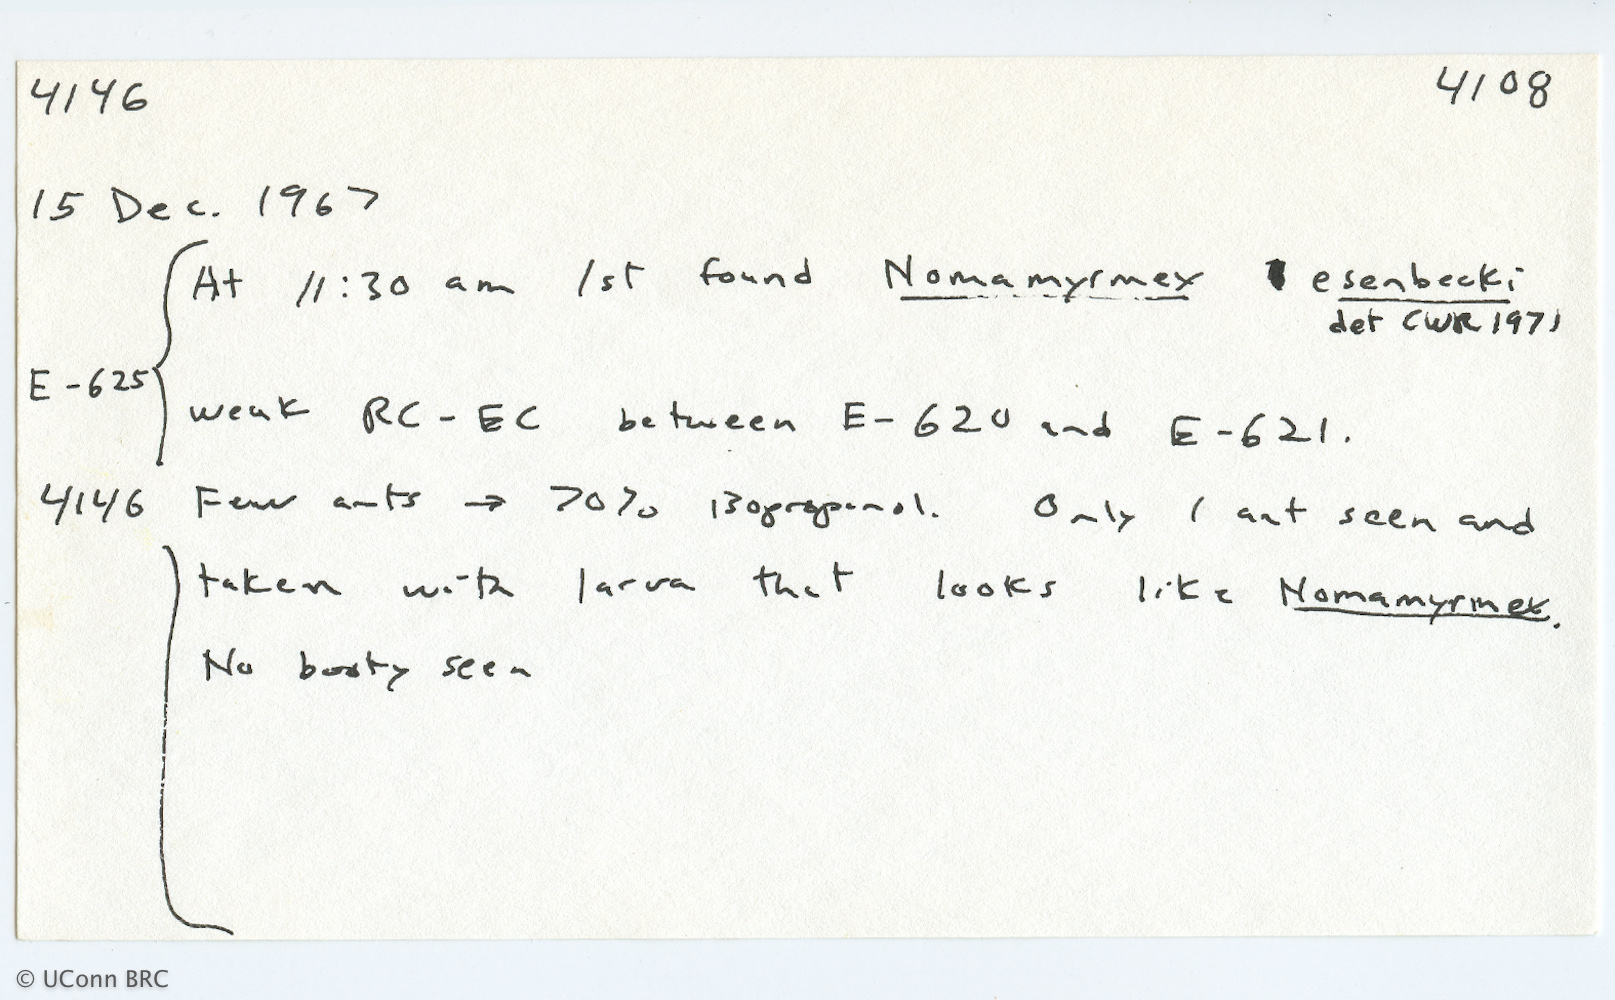 4146 4108
15 Dec. 1967
At 11:30 am 1st found Nomamyrmex esenbecki
det CWR 1971
E-625
weak RC-EC between E-620 and E-621.
4146 Few ants → 70% isopropanol. Only 1 ant seen and
taken with larva that looks like Nomamyrmex.
No booty seen
© UConn BRC